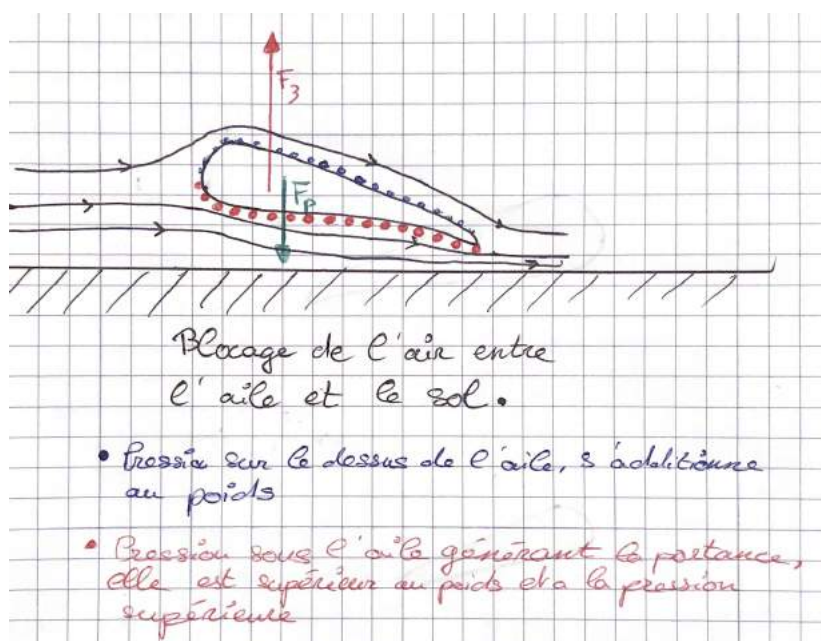 F3
Fp
Blocage de l'air entre
l'aile et le sol.
• Pression sur le dessus de l'aile, s'additionne
au poids
• Pression sous l'aile générant la portance,
elle est supérieur au poids et a la pression
supérieure